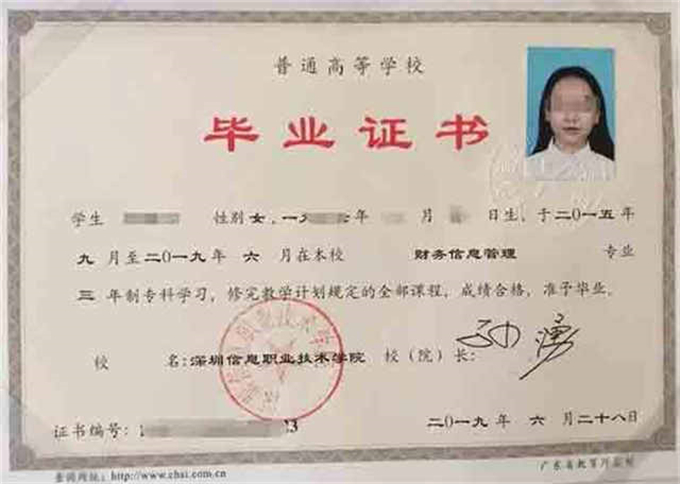 普通高等学校
毕业证书
学生 性别女,一九 年 月 日生,于二〇一五年
九月至二〇一九年 六月在本校 财务信息管理 专业
三年制专科学习,修完教学计划规定的全部课程,成绩合格,准予毕业。
校 名:深圳信息职业技术学院 校(院)长:
证书编号:1 3
二〇一九年 六月二十八日
查询网址:http://www.chsi.com.cn
广东省教育厅监制